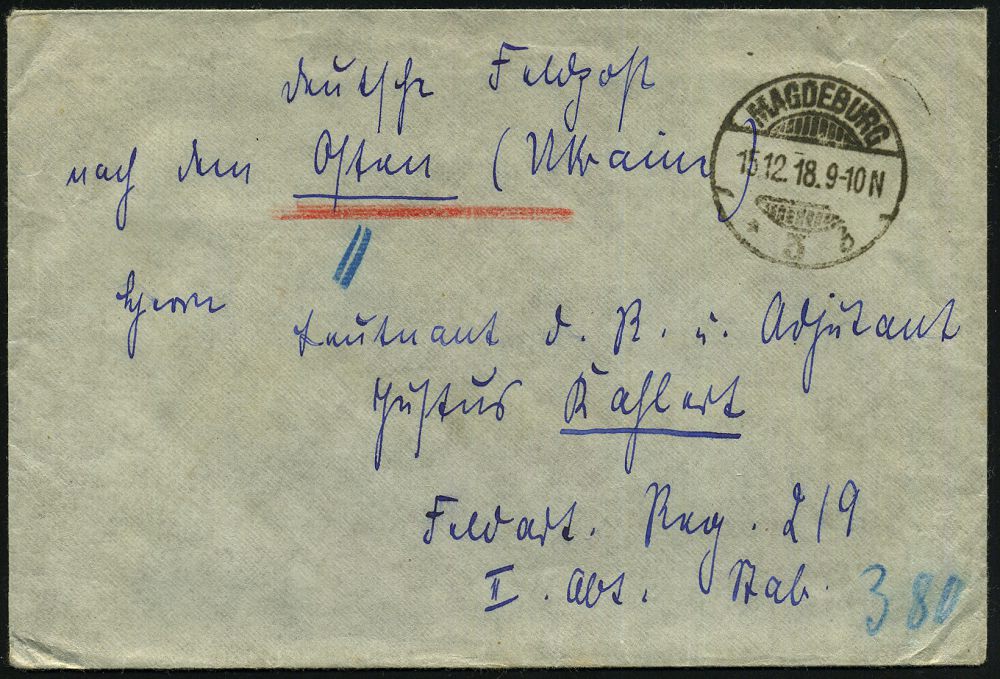 Deutsche Feldpost
nach dem Osten (Ukraine)
MAGDEBURG
15.12.18.9-10N
* 5 b
Herrn
Leutnant d. R. u. Adjutant
Justus Kahlert
Feldart. Reg. 219
II. Abt. Stab.
380